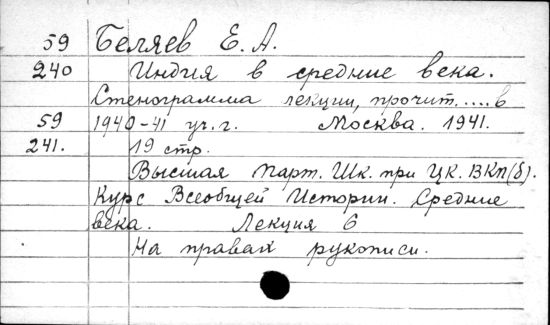 59 Беляев Е. А.
240 Индия в средние века.
Стенограмма лекции, прочит.....в
59 1940-41 уч. г. Москва. 1941.
241. 19 стр.
Высшая Парт. Шк. при ЦК. ВКП(б).
Курс Всеобщей Истории. Средние
века. Лекция 6
На правах рукописи.